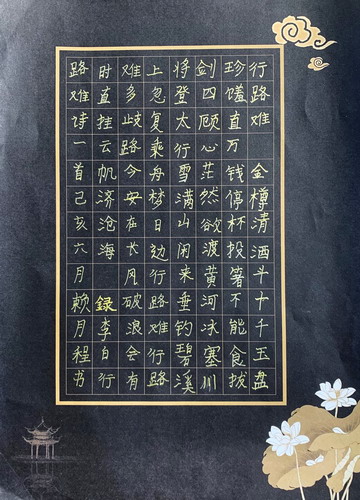 行路难 金樽清酒斗十千玉盘
珍馐直万钱停杯投箸不能食拔
剑四顾心茫然欲渡黄河冰塞川
将登太行雪满山闲来垂钓碧溪
上忽复乘舟梦日边行路难行路
难多歧路今安在长风破浪会有
时直挂云帆济沧海 録李白行
路难诗一首己亥六月赖月程书